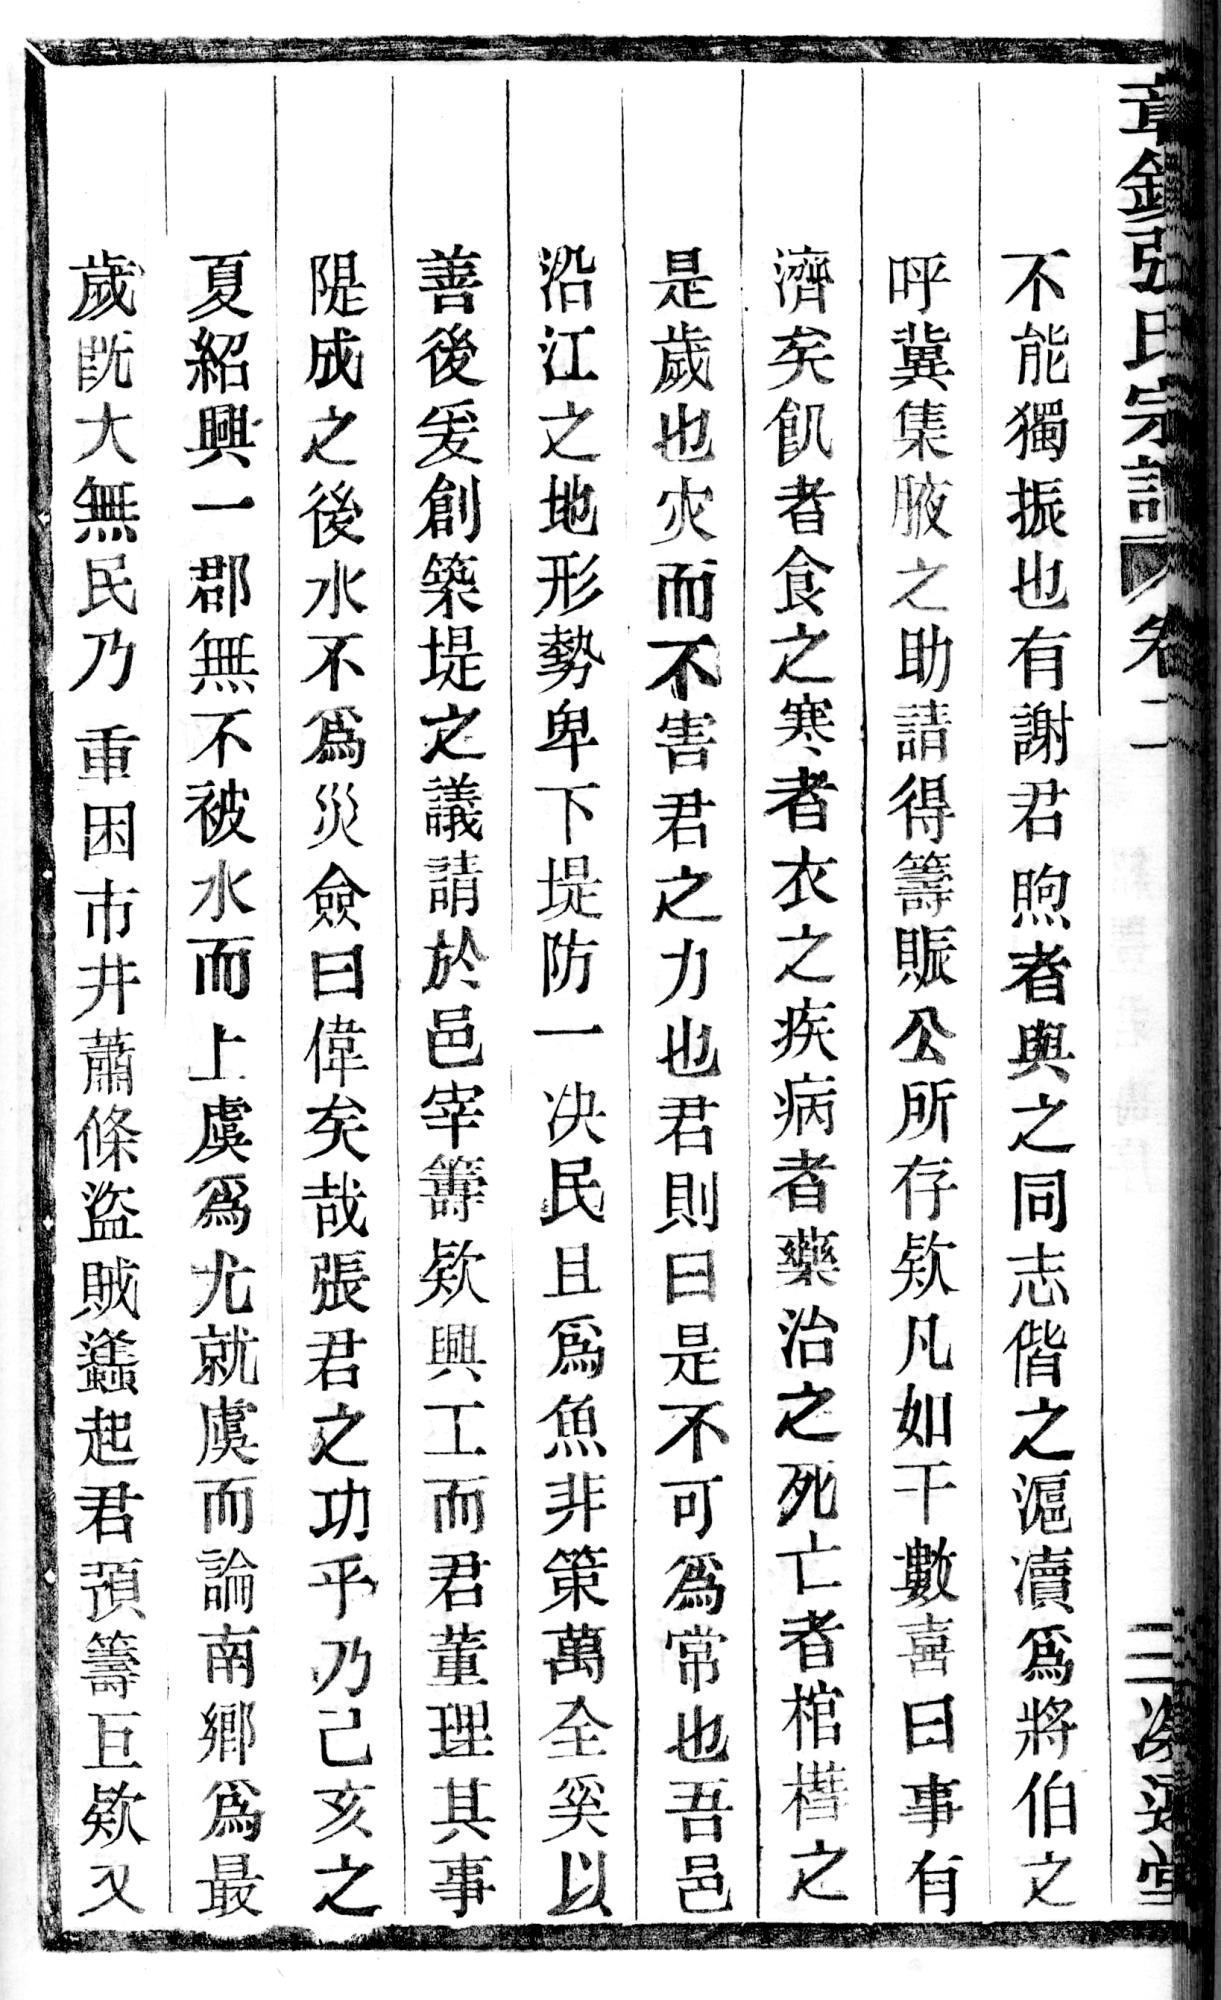 章鎮張氏宗譜 卷二 三 
不能獨振也有謝君煦者與之同志偕之滬凟爲將伯之
呼冀集腋之助請得籌賑公所存欵凡如干數喜曰事有
濟矣飢者食之寒者衣之疾病者藥治之死亡者棺槥之
是歲也灾而不害君之力也君則曰是不可爲常也吾邑
沿江之地形勢卑下堤防一決民且爲魚非策萬全奚以
善後爰創築堤之議請於邑宰籌欵興工而君董理其事
隄成之後水不爲災僉曰偉矣哉張君之功乎乃己亥之
夏紹興一郡無不被水而上虞爲尤就虞而論南鄉爲最
歲旣大無民乃重困市井蕭條盜賊蠭起君預籌巨欵又